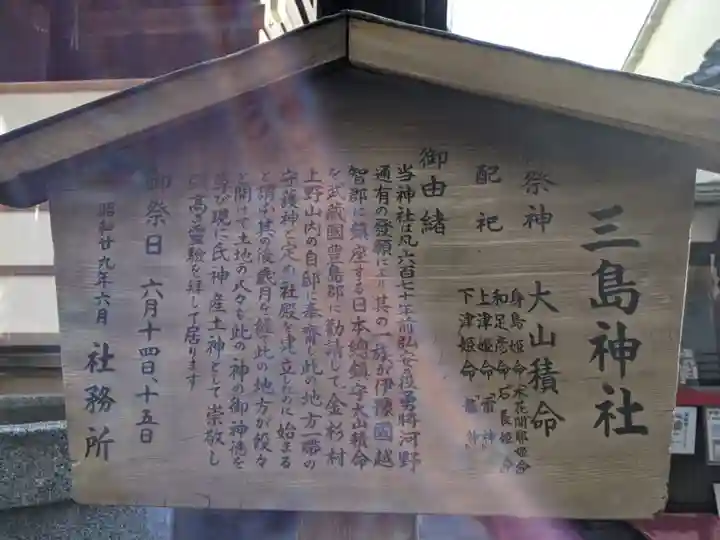 三島神社
祭神 大山積命
配祀
身島姫命 木花開耶姫命
和足彦命 石長姫命
上津姫命 雷神
下津姫命 龍神
御由緒
当神社は凡六百七十年前弘安の役勇將河野
通有の發願により其の一族が伊豫國越
智郡に鎮座する日本總鎮守大山積命
を武蔵國豊島郡に勧請して金杉村
上野山内の自邸に奉齋し此の地方一帯の
守護神と定め社殿を建立したのに始まる
と謂ふ其の後歳月を経て此の地方が段々
と開けて土地の人々も此の神の御神徳を
尊び現に氏神産土神として崇敬し
高き霊驗を拝して居ります
御祭日 六月十四日、十五日
昭和廿九年六月 社務所